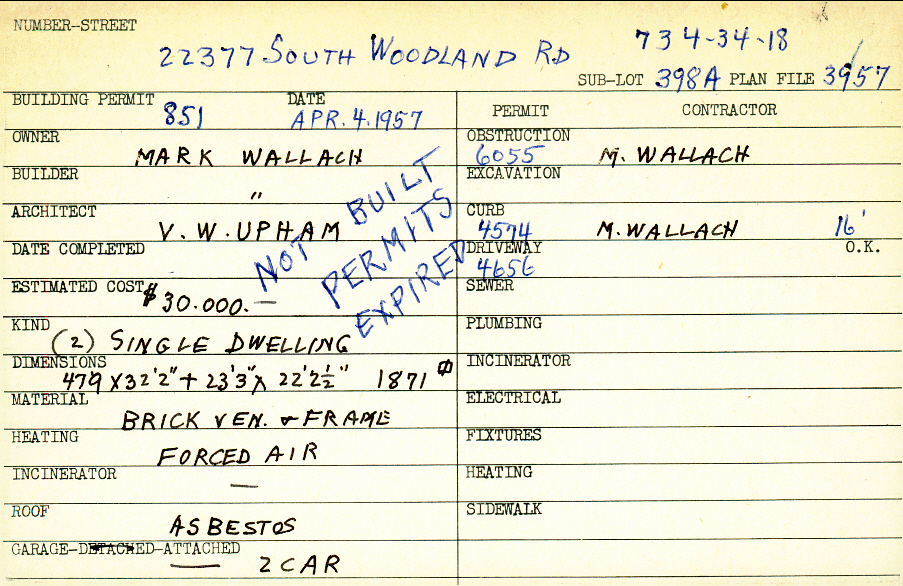 NUMBER-STREET
22377 SOUTH WOODLAND RD
734-34-18
SUB-LOT 398A PLAN FILE 3957
BUILDING PERMIT 851 DATE APR. 4. 1957
PERMIT CONTRACTOR
OWNER MARK WALLACH
OBSTRUCTION 6055 M. WALLACH
BUILDER "
EXCAVATION
ARCHITECT V. W. UPHAM
CURB 4574 M. WALLACH 16'
DATE COMPLETED
DRIVEWAY 4656 O.K.
NOT BUILT
PERMITS
EXPIRED
ESTIMATED COST $30.000.—
SEWER
KIND (2) SINGLE DWELLING
PLUMBING
DIMENSIONS 479 X 32'2" + 23'3" X 22'2½" 1871
INCINERATOR
MATERIAL BRICK VEN. & FRAME
ELECTRICAL
HEATING FORCED AIR
FIXTURES
INCINERATOR —
HEATING
ROOF ASBESTOS
SIDEWALK
GARAGE-DETACHED-ATTACHED 2 CAR